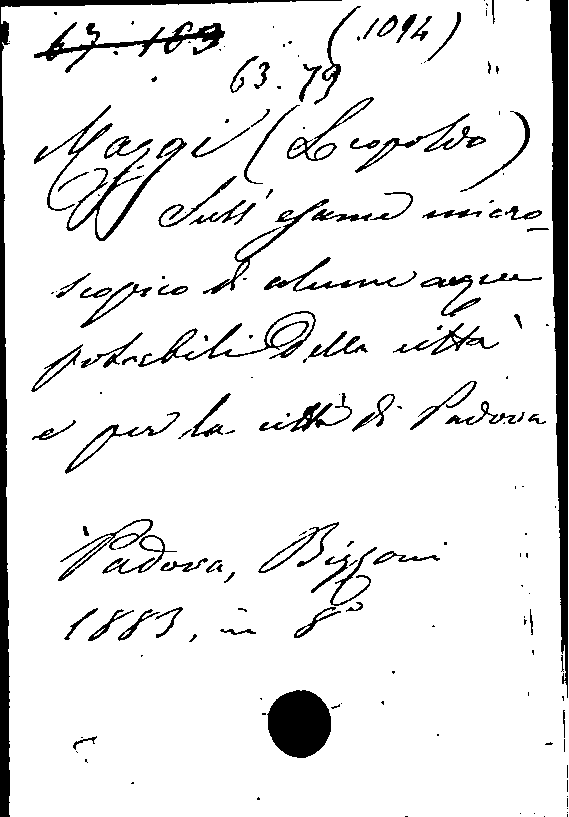 67. 183 (1094)
63. 79
Maggi (Leopoldo)
Sull' esame micro-
scopico di alcune acque
potabili della città
e per la città di Padova
Padova, Bizzoni
1883, in 8°